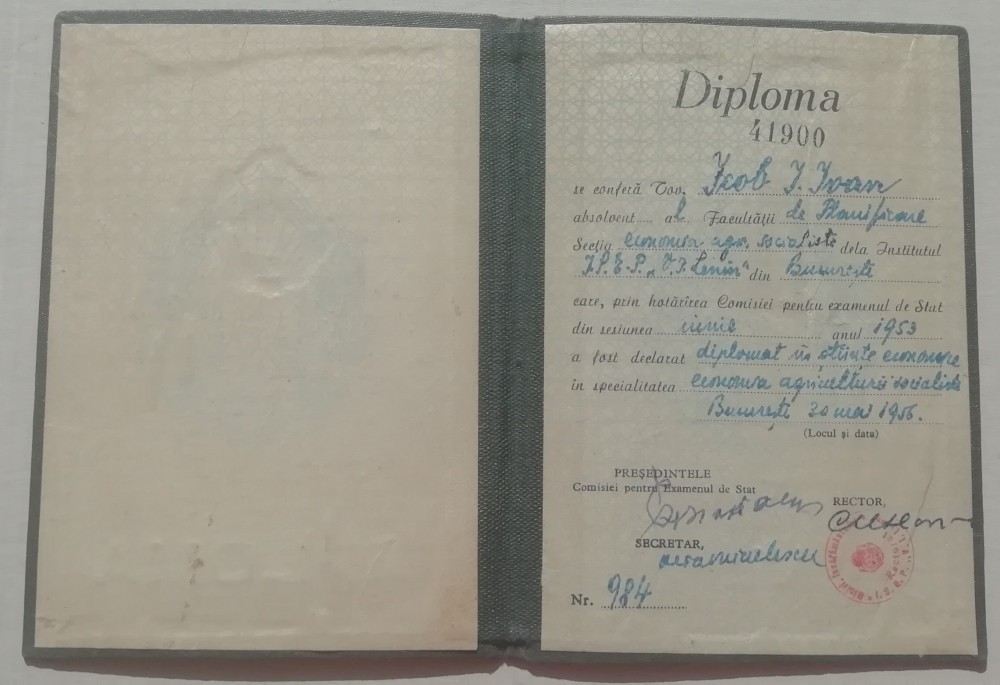 Diploma
41900
se conferă Tov. Icob I. Ivan
absolvent al Facultății de Planificare
Secția economia agr. socialiste dela Institutul
I.S.E.P. „V.I. Lenin" din București
care, prin hotărîrea Comisiei pentru examenul de Stat
din sesiunea iunie anul 1953
a fost declarat diplomat în științe economice
în specialitatea economia agriculturii socialiste
București 30 mai 1956.
(Locul și data)
PREȘEDINTELE
Comisiei pentru Examenul de Stat
RECTOR,
SECRETAR,
Nr. 984